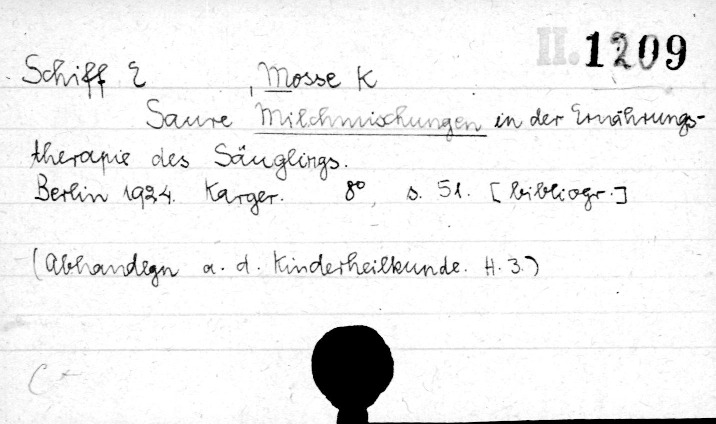 II. 1209
Schiff E , Mosse K
Saure Milchmischungen in der Ernährungs-
therapie des Säuglings.
Berlin 1924. Karger. 8°, s. 51. [bibliogr.]
(Abhandlgn a. d. Kinderheilkunde. H. 3.)